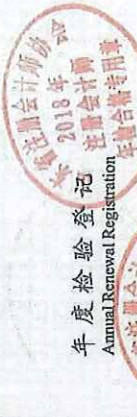 年度检验登记
Annual Renewal Registration
省注册会计师协会
2018年
注册会计师
年检合格专用章